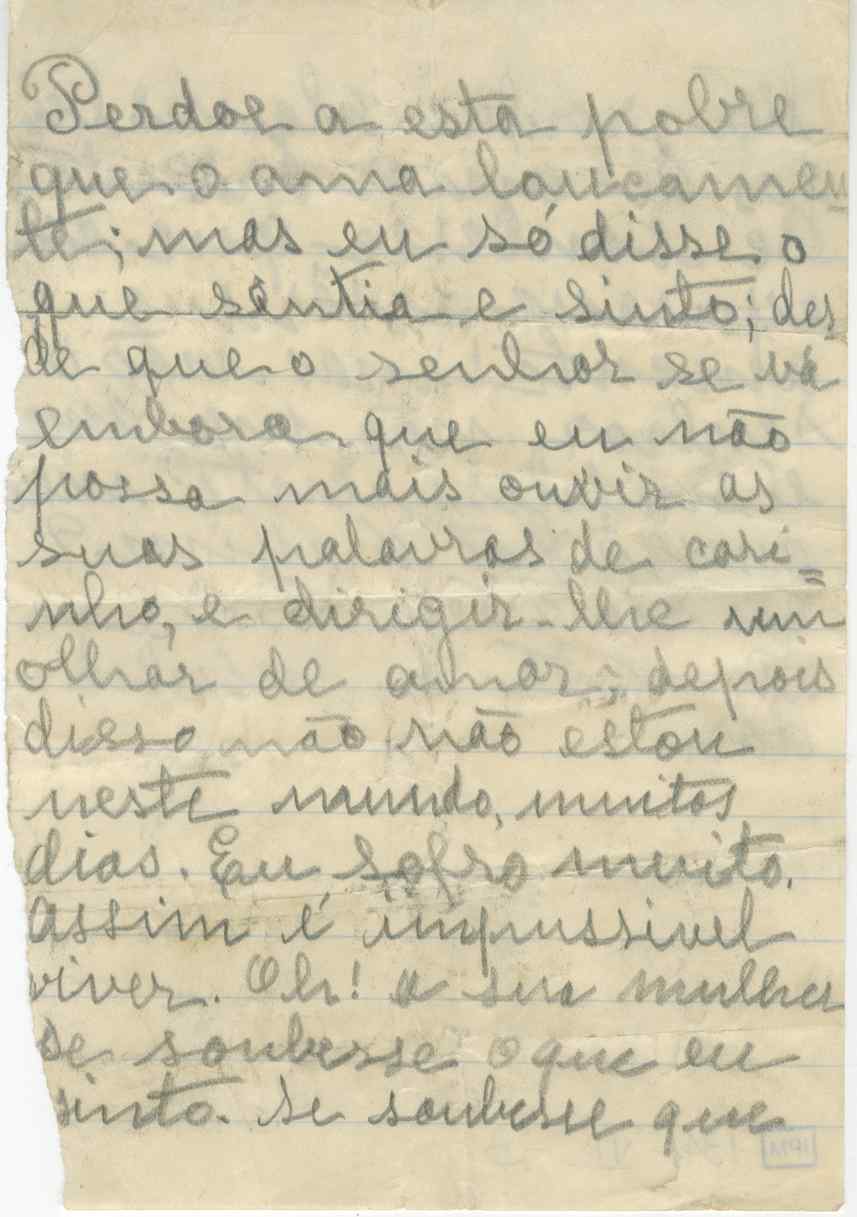 Perdoe a esta pobre
que o ama loucamen=
te; mas eu só disse o
que sentia e sinto; des
de que o senhor se vá
embora que eu não
possa mais ouvir as
suas palavras de cari=
nho, e dirigir-lhe um
olhar de amor; depois
disso não não estou
neste mundo, muitos
dias. Eu sofro muito.
Assim é impussivel
viver. Oh! a sua mulher
se soubesse o que eu
sinto. Se soubesse que